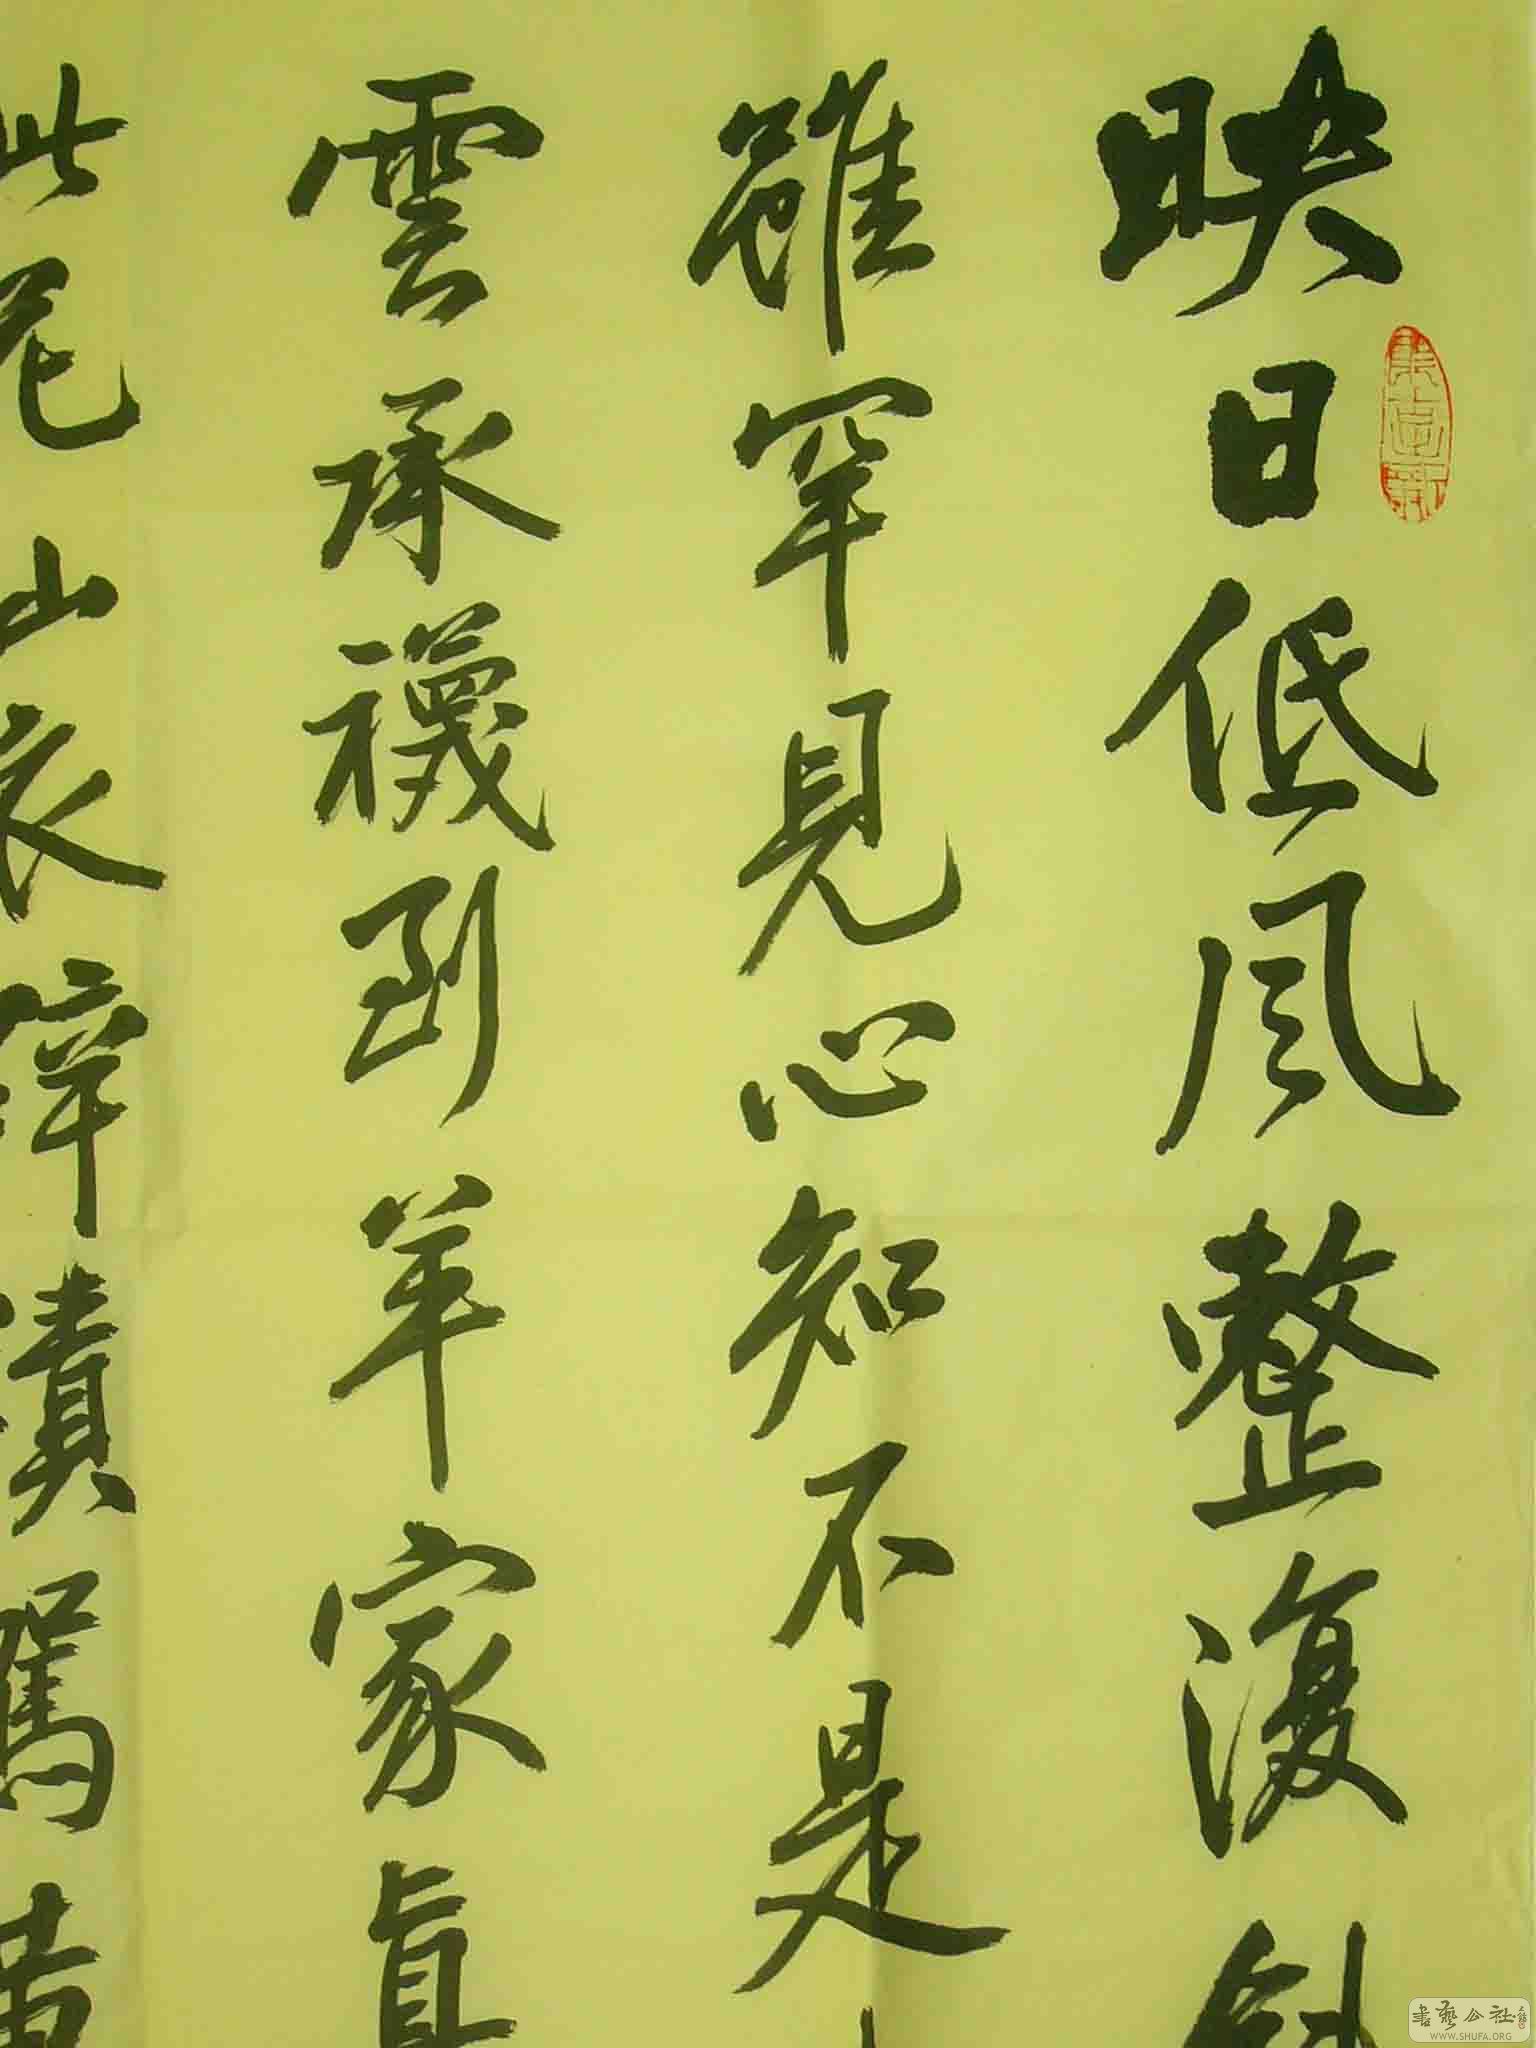 映日低風整復斜
雖罕見心知不是
雲承襪到羊家真
此花山衣
漬駕黄
書藝公社
WWW.SHUFA.ORG